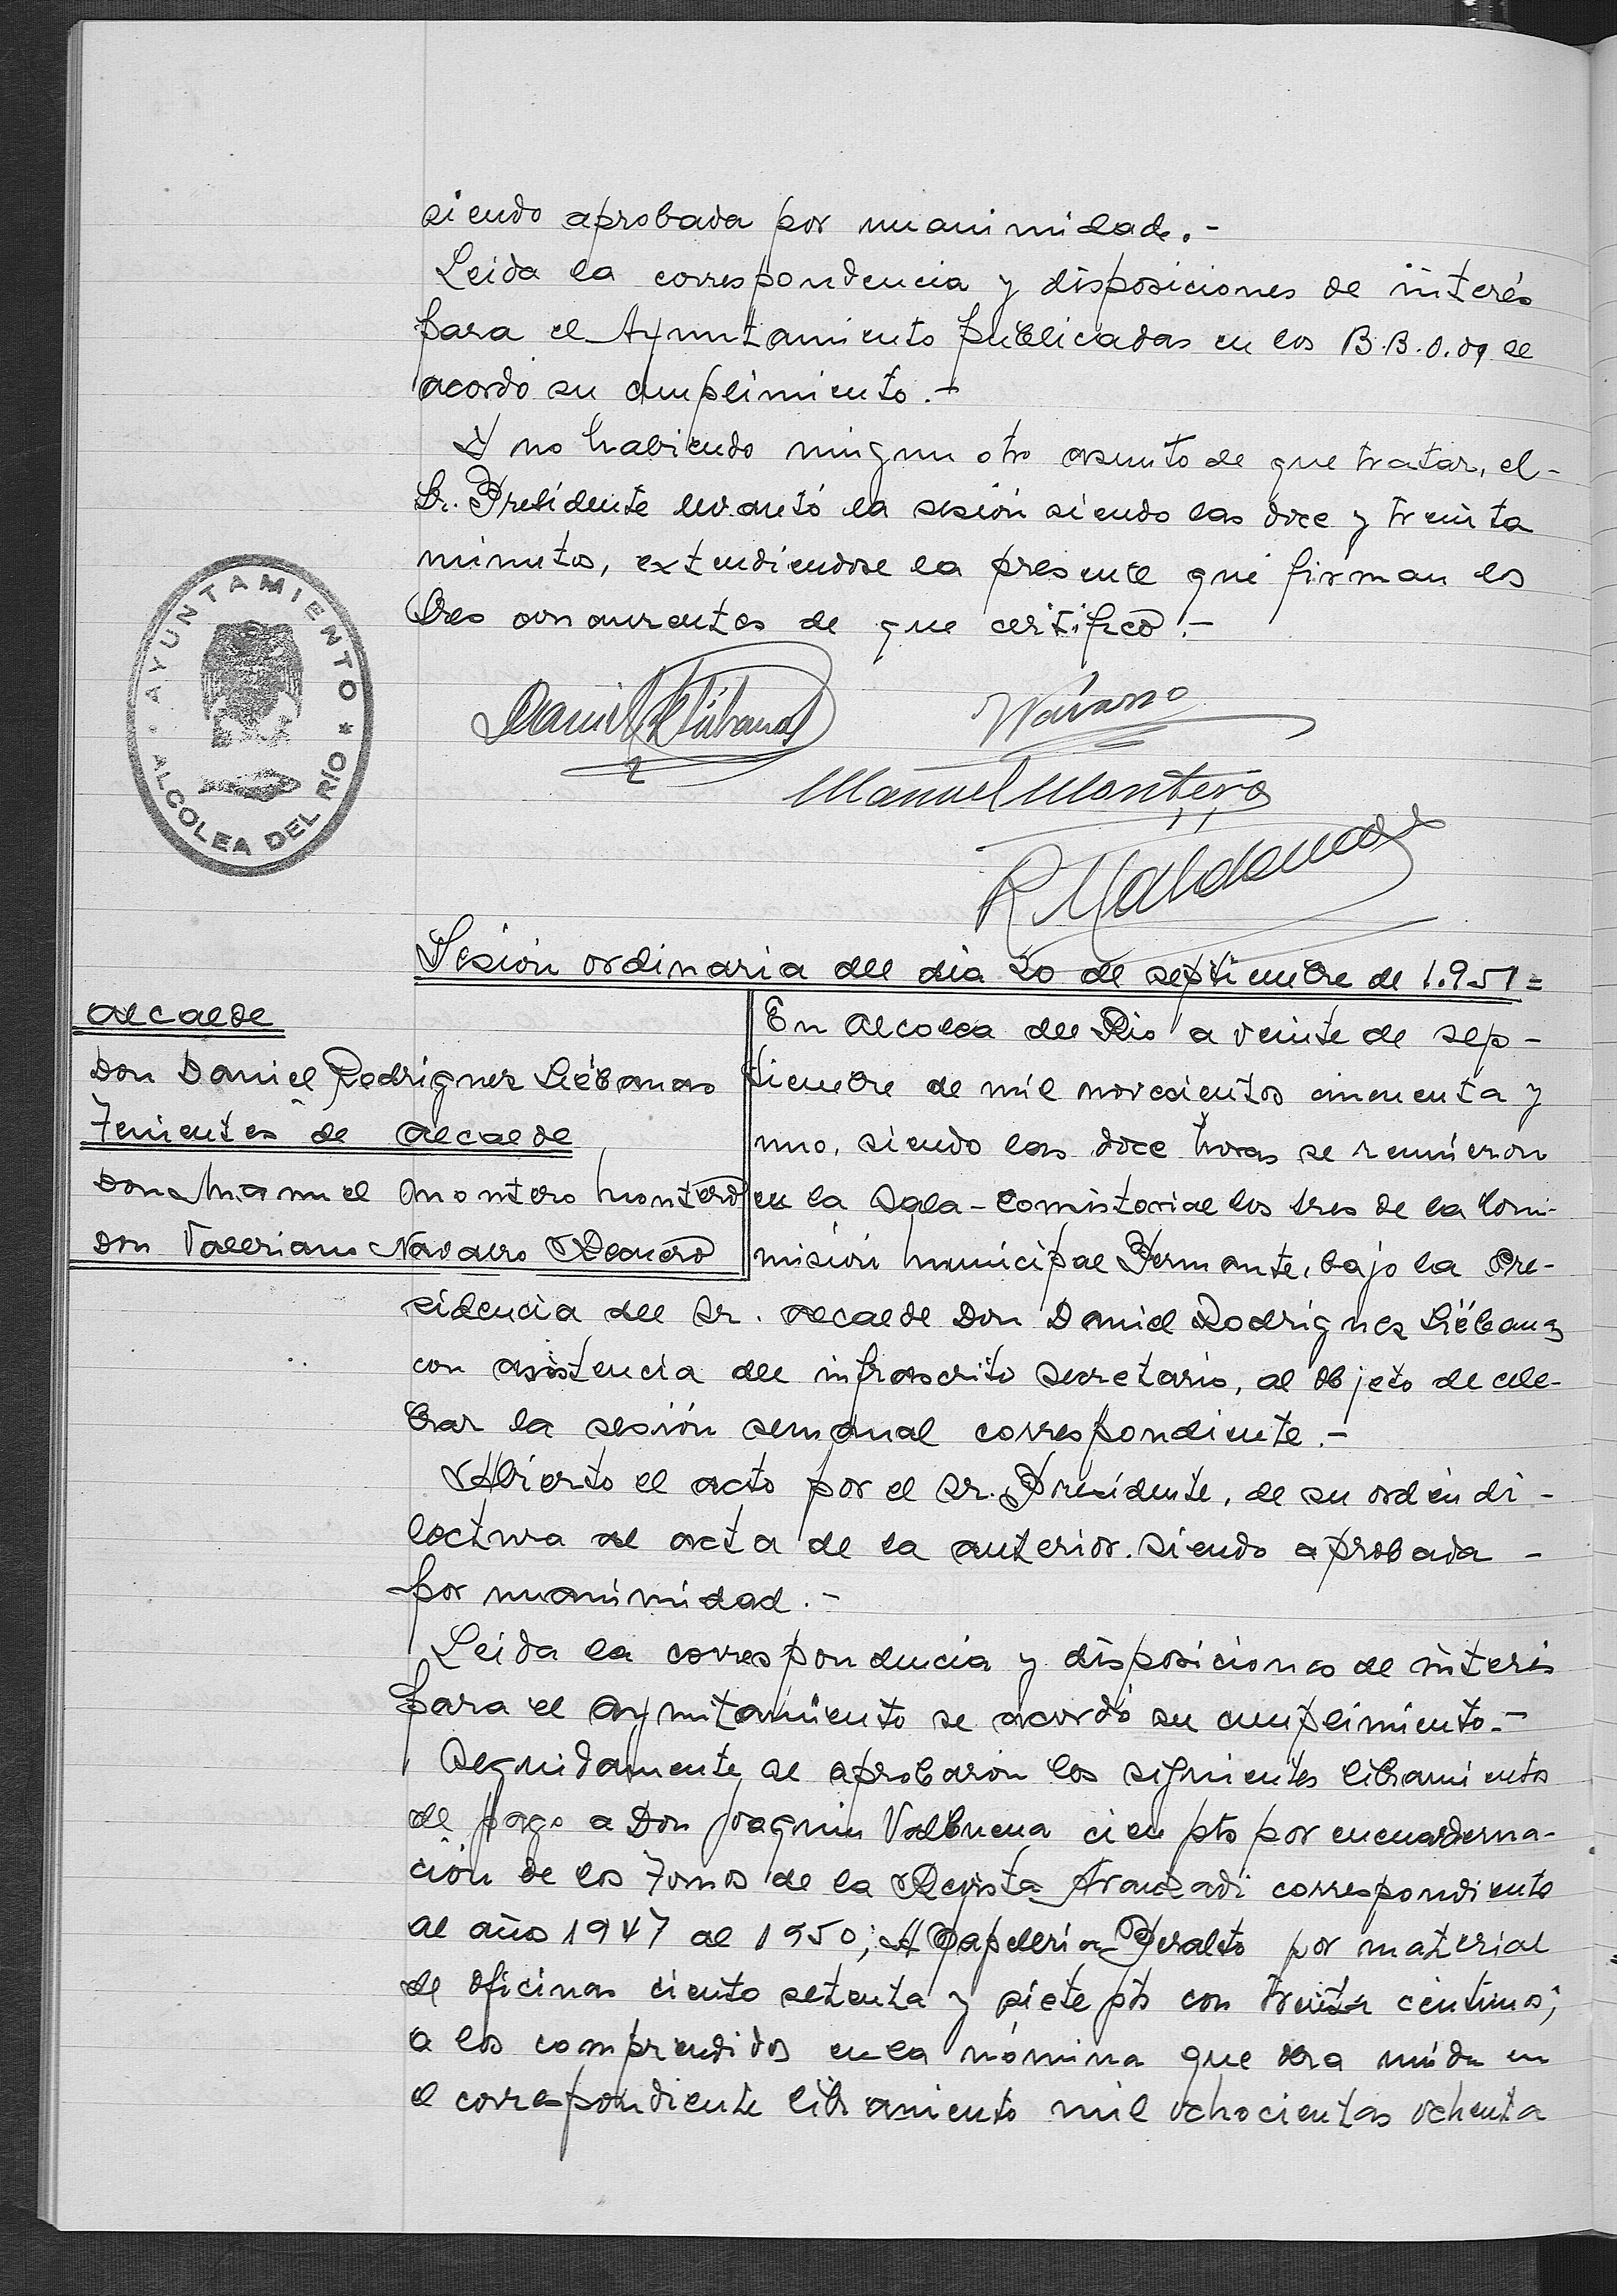 siendo aprobada por unanimidad.-
Leida la correspondencia y disposiciones de interés
para el Ayuntamiento publicadas en los B.B.O.O. se
acordo su cumplimiento.-
Y no habiendo ningun otro asunto de que tratar, el-
Sr. Presidente levantó la sesión siendo las doce y treinta
minutos, extendiendose la presente que firman los
Sres concurrentes de que certifico.-
AYUNTAMIENTO * ALCOLEA DEL RIO *
Daniel R Liébanas
Navarro
Manuel Montero
R. Maldonado
Sesion ordinaria del dia 20 de septiembre de 1.951=
Alcalde
Don Daniel Rodriguez Liébanas
Tenientes de Alcalde
Don Manuel Montero Montero
Don Valeriano Navarro Romero
En Alcolea del Rio a veinte de sep-
tiembre de mil novecientos cincuenta y
uno, siendo las doce horas se reunieron
en la Sala-Comistorial los sres de la Com-
misión Municipal Permante, bajo la Pre-
sidencia del Sr. Alcalde Don Daniel Rodriguez Liébanas
con asistencia del infrascrito secretario, al objeto de cele-
brar la sesión semanal correspondiente.-
Abierto el acto por el Sr. Presidente, de su orden di-
lectura al acta de la anterior. siendo aprobada-
por unanimidad.-
Leida la correspondencia y disposiciones de interés
para el Ayuntamiento se acordó su cumplimiento.-
Seguidamente se aprobaron los siguientes libramientos
de pago a Don Joaquin Valbuena cien pts por encuaderna-
ción de los Tomos de la Revista Aranzadi correspondiente
al año 1947 al 1950; A Papelería Peralto por material
de oficinas ciento setenta y siete pts con treinta centimos;
a los comprendidos en la nómina que va unida en
el correspondiente libramiento mil ochocientas ochenta